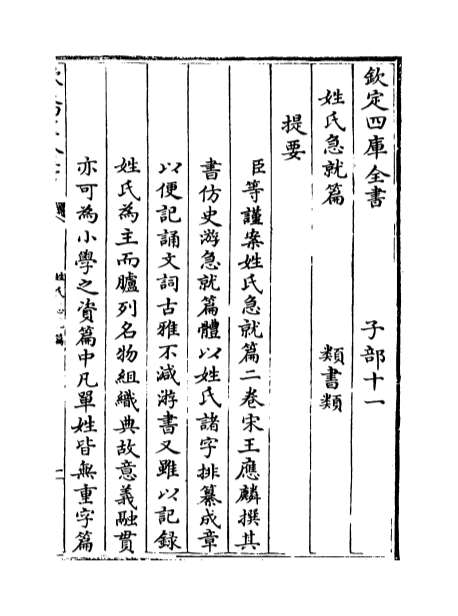 欽定四庫全書 子部十一
姓氏急就篇 類書類
提要
臣等謹案姓氏急就篇二卷宋王應麟撰其
書仿史游急就篇體以姓氏諸字排纂成章
以便記誦文詞古雅不減游書又雖以記錄
姓氏為主而臚列名物組織典故意義融貫
亦可為小學之資篇中凡單姓皆無重字篇